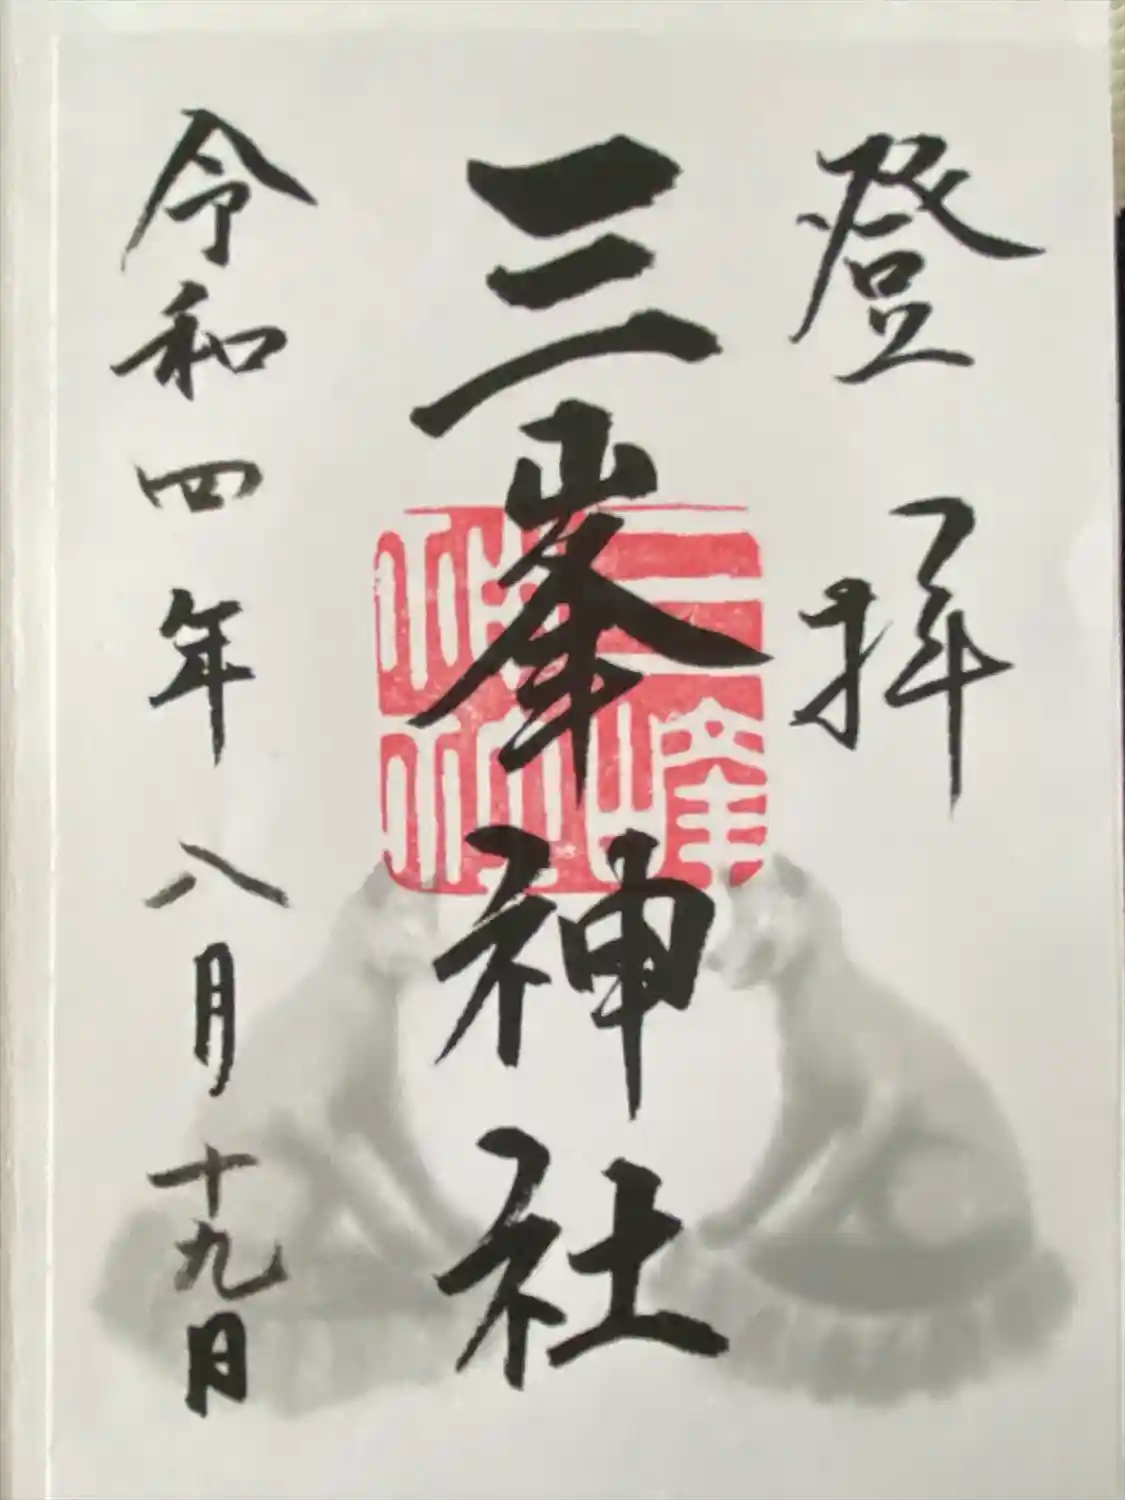 登拝
三峯神社
三峰神社
令和四年八月十九日